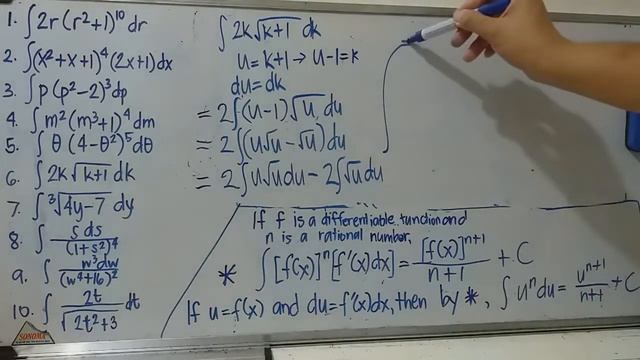 1. ∫2r(r²+1)¹⁰dr
2. ∫(x²+x+1)⁴(2x+1)dx
3. ∫p(p²-2)³dp
4. ∫m²(m³+1)⁴dm
5. ∫θ(4-θ²)⁵dθ
6. ∫2k√(k+1) dk
7. ∫∛(4y-7) dy
8. ∫ s ds/(1+s²)⁴
9. ∫ w³dw/(w⁴+16)²
10. ∫ 2t/√(2t²+3) dt
SONOMA
∫2k√(k+1) dk
u=k+1→u-1=k
du=dk
=2∫(u-1)√u du
=2∫(u√u-√u)du
=2∫u√u du-2∫√u du
If f is a differentiable function and
n is a rational number,
* ∫[f(x)]ⁿ[f'(x)dx]=[f(x)]ⁿ⁺¹/(n+1)+C
If u=f(x) and du=f'(x)dx, then by *, ∫uⁿdu=uⁿ⁺¹/(n+1)+C